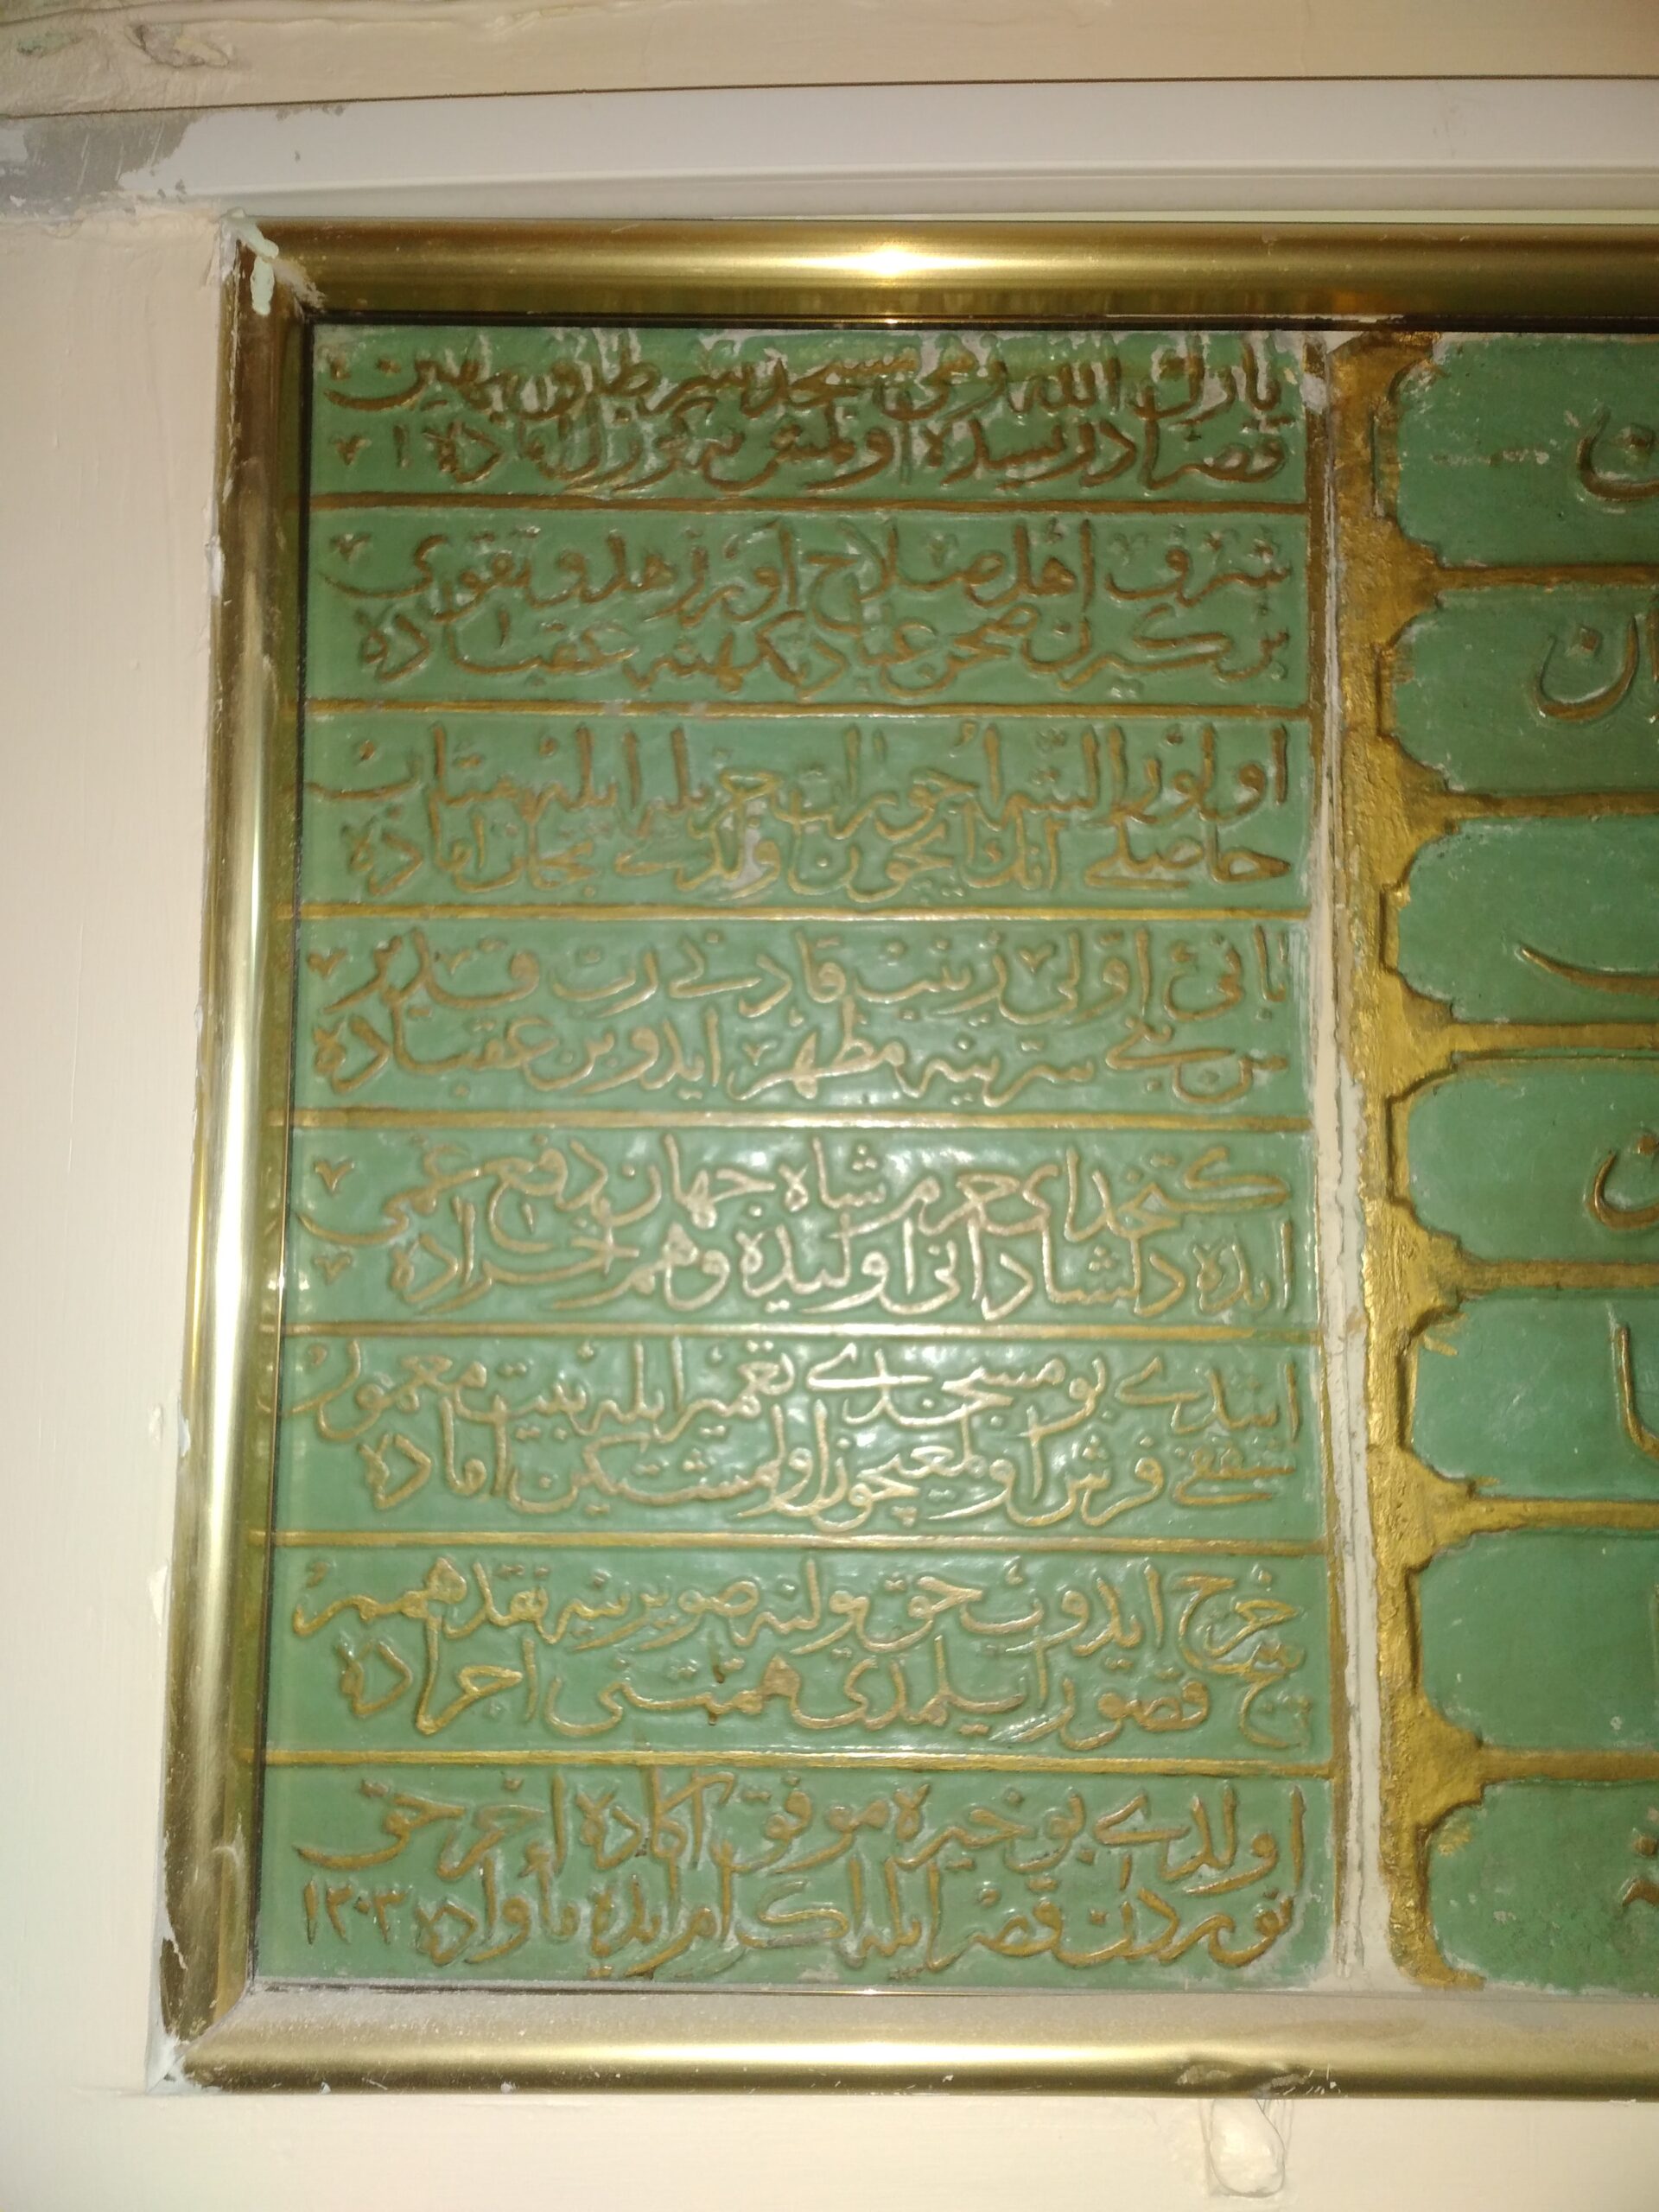 بارك الله زهى مسجد سر طاق بهين
قصر ادريسده اولمش
شرف اهل صلاح اور زهد و تقوى
بر كيرن صحن عباديكهنه عقباده
اولور البته اجورات جزيله ايله متاب
حاصلى انك ايچون ولدى جنان اماده
بانئ اولى زينب قادنى رب قدير
من بنى سترينه مظهر ايدوبن عقباده
كتخداى حرم شاه جهان دفع غمى
ايده دلشاد انى اوليده وهم اخراده
ايتدى بو مسجدى تعمير ايله بيت معمور
سقفى فرش اولمغيچون اولمشتكين اماده
خرج ايدوب حق يولنه صوبرينه نقد همم
هيچ قصور ايلمدى همتنى اجراده
اولدى بو خيره موفق اكاده اخر حق
نوردن قصر ايله اكرام ايده مأواده ١٢٠٣
ن
ان
ب
ت